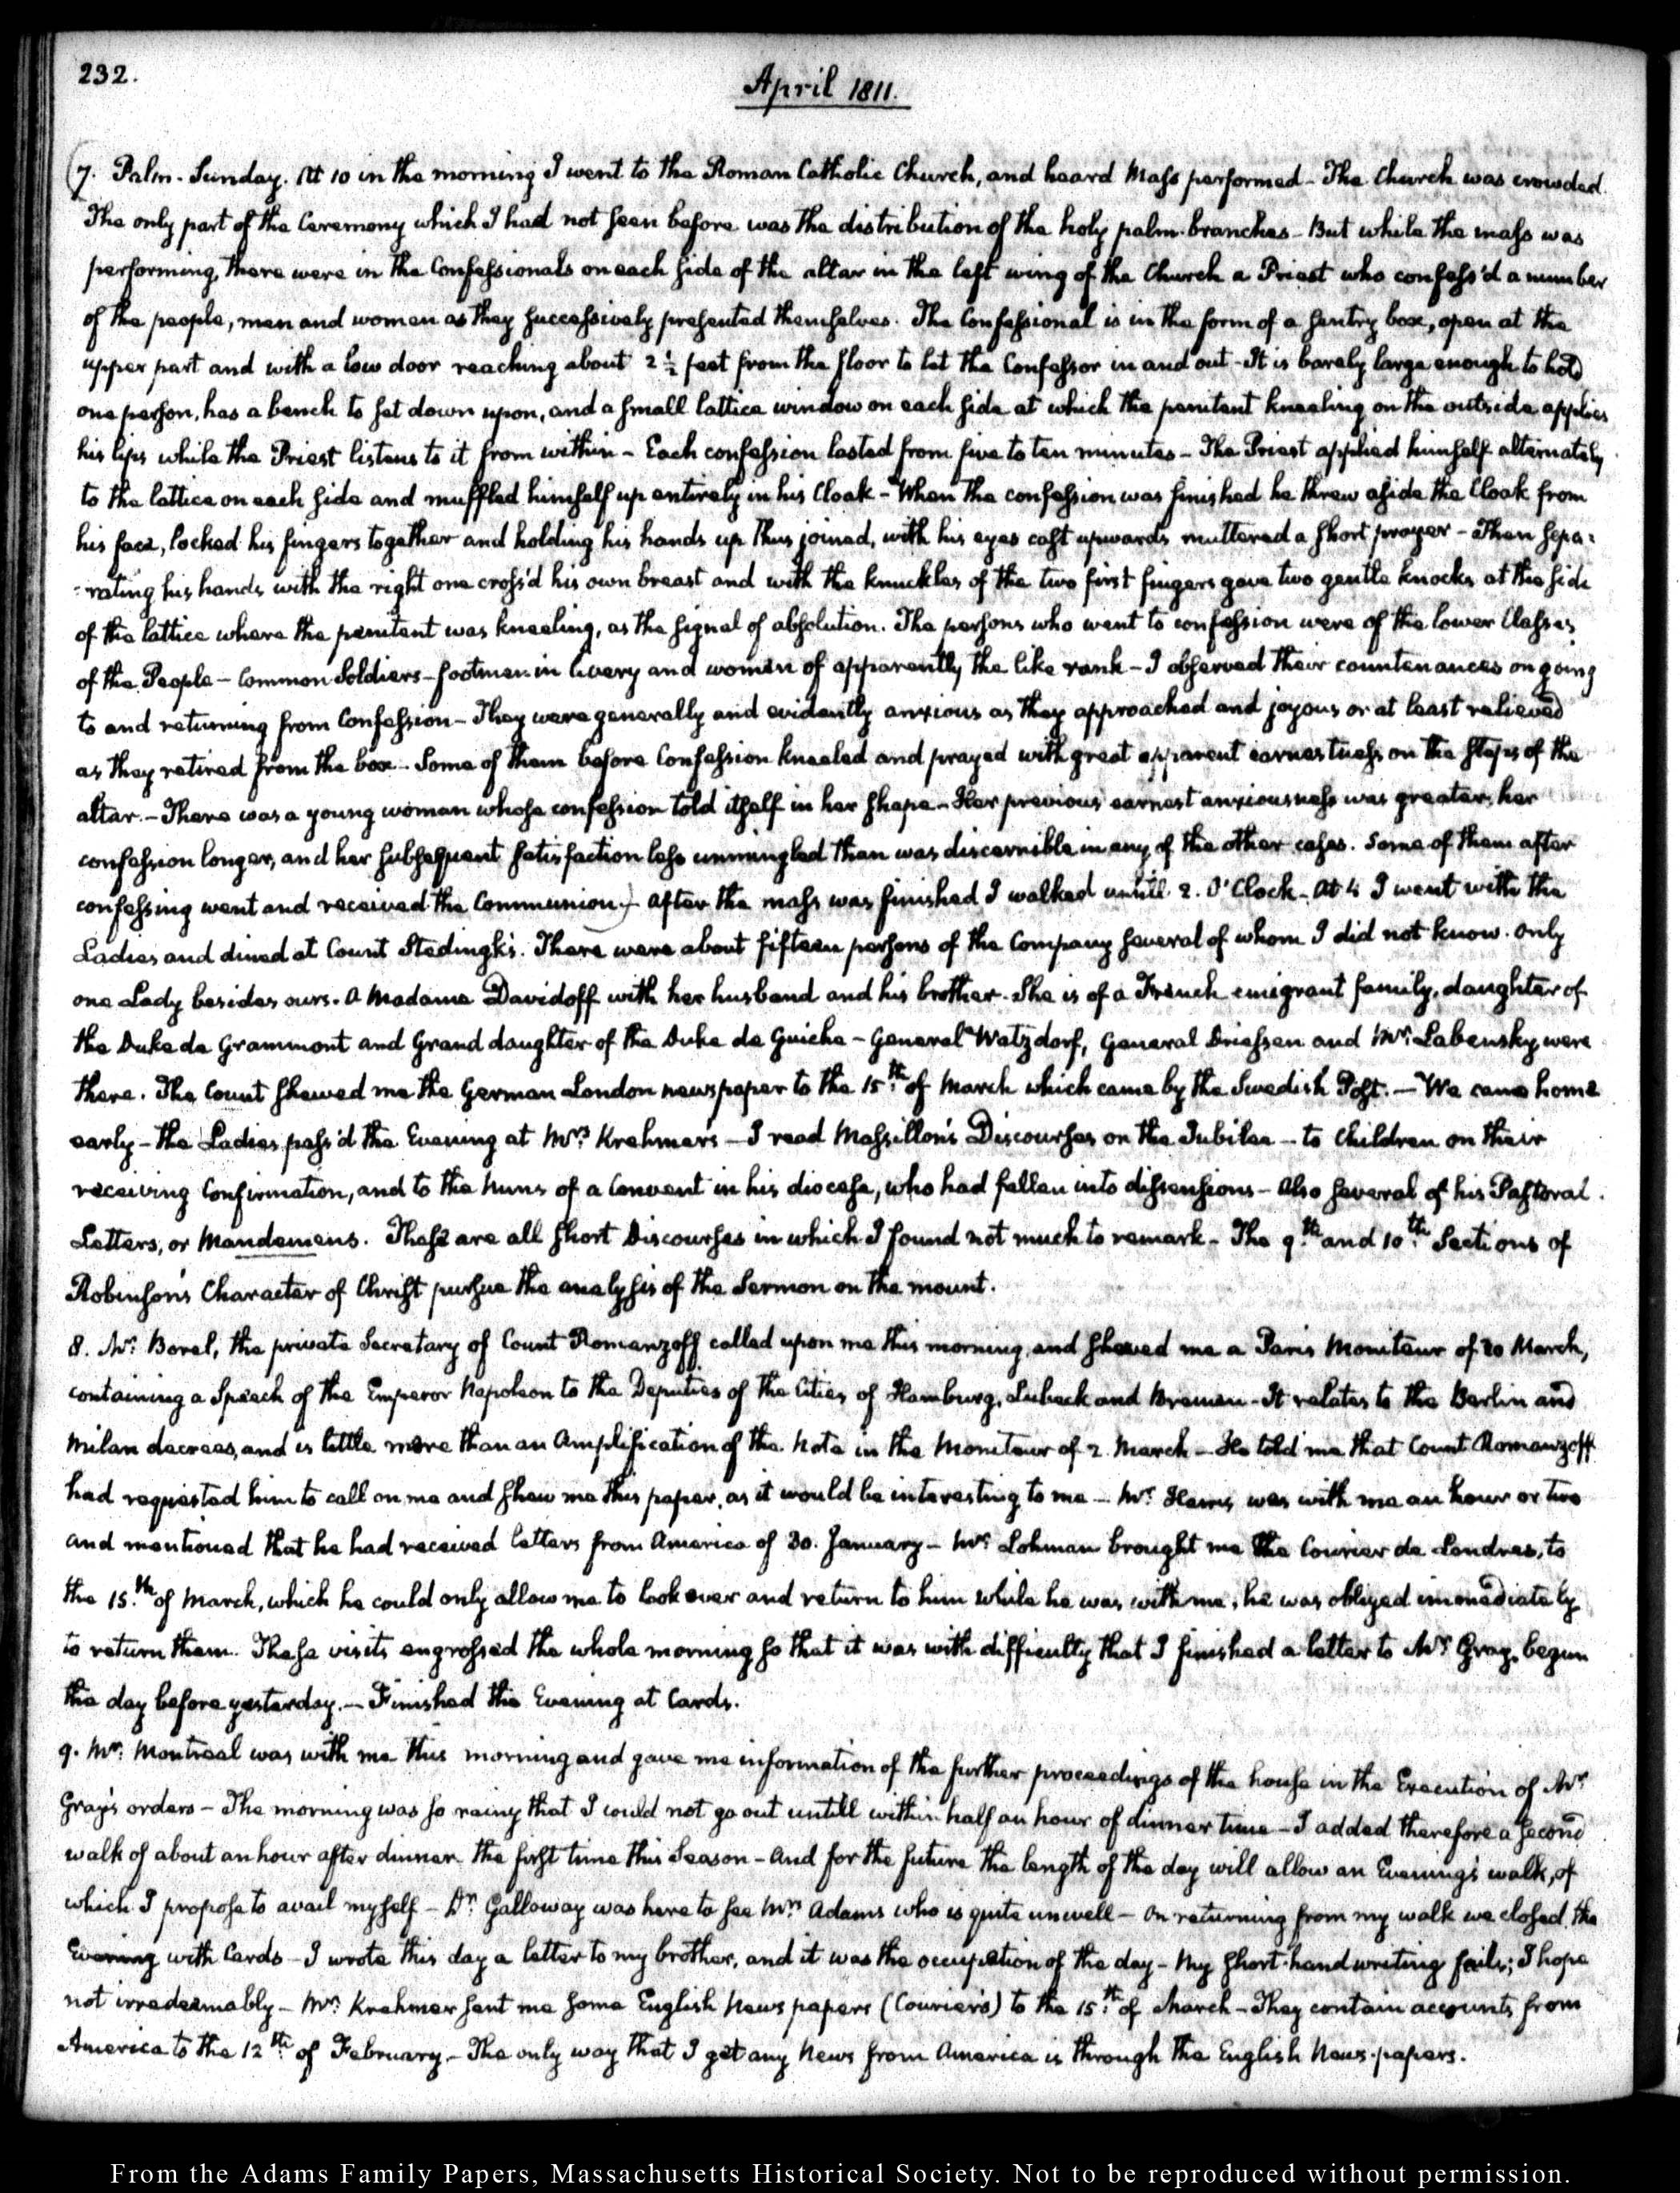 232.
April 1811.
(7. Palm-Sunday. At 10 in the morning I went to the Roman Catholic Church, and heard Mass performed - The Church was crowded.
The only part of the Ceremony which I had not seen before was the distribution of the holy palm-branches - But while the mass was
performing, there were in the Confessionals on each side of the altar in the left wing of the Church a Priest who confess'd a number
of the people, men and women as they successively presented themselves. The Confessional is in the form of a sentry box, open at the
upper part and with a low door reaching about 2 1/2 feet from the floor to let the Confessor in and out - It is barely large enough to hold
one person, has a bench to set down upon, and a small lattice window on each side at which the penitent kneeling on the outside applies
his lips while the Priest listens to it from within - Each confession lasted from five to ten minutes - The Priest applied himself alternately
to the lattice on each side and muffled himself up entirely in his Cloak - When the confession was finished he threw aside the Cloak from
his face, locked his fingers together and holding his hands up thus joined, with his eyes cast upwards muttered a short prayer - Then sepa-
-rating his hands with the right one cross'd his own breast and with the knuckles of the two first fingers gave two gentle knocks at the side
of the lattice where the penitent was kneeling, as the signal of absolution. The persons who went to confession were of the lower Classes
of the People - Common Soldiers - footmen in livery and women of apparently the like rank - I observed their countenances on going
to and returning from Confession - They were generally and evidently anxious as they approached and joyous or at least relieved
as they retired from the box - Some of them before Confession kneeled and prayed with great apparent earnestness on the steps of the
altar. - There was a young woman whose confession told itself in her shape - Her previous earnest anxiousness was greater, her
confession longer, and her subsequent satisfaction less unmingled than was discernible in any of the other cases. Some of them after
confessing went and received the Communion -) After the mass was finished I walked untill 2. O'Clock - At 4 I went with the
Ladies and dined at Count Stedingk's. There were about fifteen persons of the Company several of whom I did not know. Only
one Lady besides ours. A Madame Davidoff with her husband and his brother. She is of a French emigrant family, daughter of
the Duke de Grammont and Grand daughter of the Duke de Guiche - General Watzdorf, General Driessen and Mr. Labensky were
there. The Count shewed me the German London newspaper to the 15th. of March which came by the Swedish Post. - We came home
early - the Ladies pass'd the Evening at Mrs. Krehmer's - I read Massillon's Discourses on the Jubilee - to Children on their
receiving Confirmation, and to the Nuns of a Convent in his diocese, who had fallen into dissensions - Also several of his Pastoral
Letters, or Mandemens. These are all short Discourses in which I found not much to remark - The 9th. and 10th. Sections of
Robinson's Character of Christ pursue the analysis of the Sermon on the mount.
8. Mr. Borel, the private Secretary of Count Romanzoff called upon me this morning, and shewed me a Paris Moniteur of 20 March,
containing a Speech of the Emperor Napoleon to the Deputies of the Cities of Hamburg, Lubeck and Bremen - It relates to the Berlin and
Milan decrees, and is little more than an Amplification of the Note in the Moniteur of 2. March - He told me that Count Romanzoff
had requested him to call on me and shew me this paper, as it would be interesting to me - Mr. Harris was with me an hour or two
and mentioned that he had received letters from America of 30. January - Mr. Lohman brought me the Courier de Londres, to
the 15th. of March, which he could only allow me to look over and return to him while he was with me, he was obliged immediately
to return them. These visits engrossed the whole morning so that it was with difficulty that I finished a letter to Mr. Gray, begun
the day before yesterday. - Finished the Evening at Cards.
9. Mr. Montreal was with me this morning and gave me information of the further proceedings of the house in the Execution of Mr.
Gray's orders - The morning was so rainy that I could not go out untill within half an hour of dinner time - I added therefore a second
walk of about an hour after dinner the first time this Season - And for the future the length of the day will allow an Evening's walk, of
which I propose to avail myself - Dr. Galloway was here to see Mrs. Adams who is quite unwell - On returning from my walk we closed the
Evening with Cards - I wrote this day a letter to my brother, and it was the occupation of the day - My short-hand writing fails; I hope
not irredeemably - Mrs. Krehmer sent me some English News papers (Couriers) to the 15th. of March - They contain accounts from
America to the 12th. of February - The only way that I get any News from America is through the English News-papers.
From the Adams Family Papers, Massachusetts Historical Society. Not to be reproduced without permission.